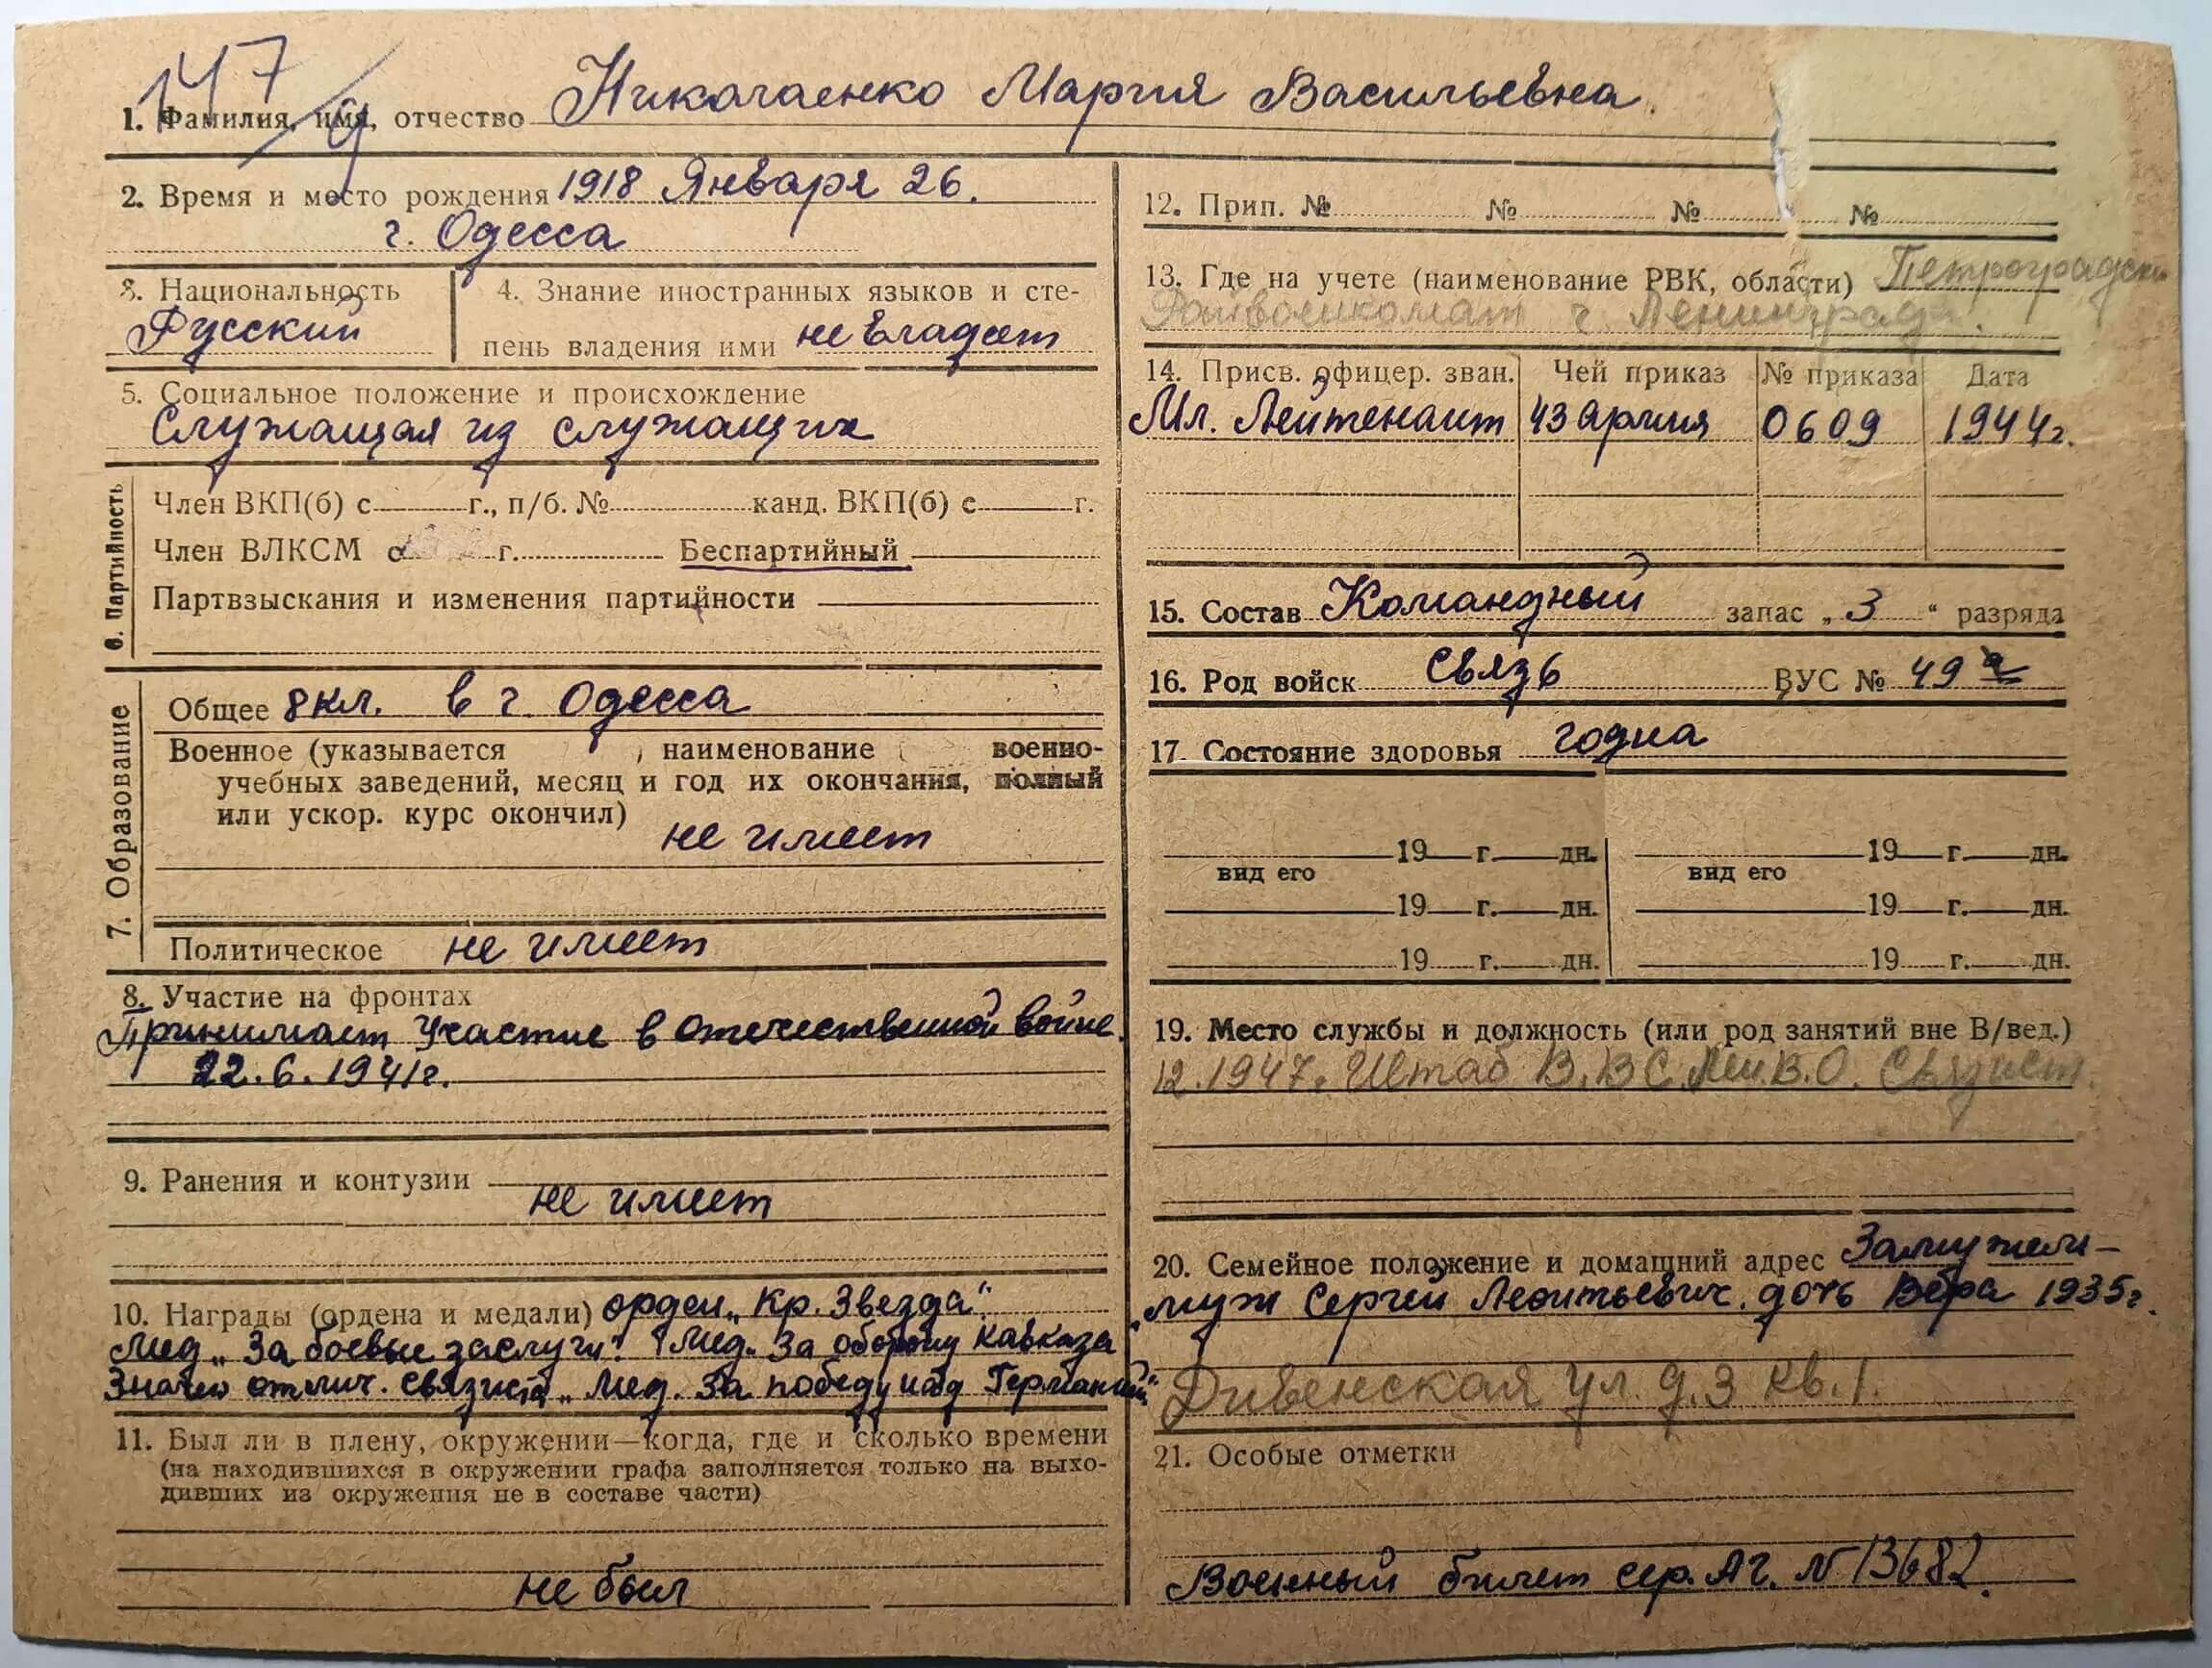 147
1. Фамилия, имя, отчество Николаенко Мария Васильевна.
2. Время и место рождения 1918 Января 26.
г. Одесса
3. Национальность
Русский
4. Знание иностранных языков и сте-
пень владения ими не владеет
5. Социальное положение и происхождение
Служащая из служащих
6. Партийность
Член ВКП(б) с г., п/б. № канд. ВКП(б) с г.
Член ВЛКСМ с г. Беспартийный
Партвзыскания и изменения партийности
7. Образование
Общее 8 кл. в г. Одесса
Военное (указывается , наименование военно-
учебных заведений, месяц и год их окончания, полный
или ускор. курс окончил)
не имеет
Политическое не имеет
8. Участие на фронтах
Принимает Участие в Отечественной войне.
22.6.1941г.
9. Ранения и контузии
не имеет
10. Награды (ордена и медали) орден „Кр. Звезда“.
Мед „За боевые заслуги“. Мед. За оборону Кавказа
Значок отлич. связиста „Мед. За победу над Германией“
11. Был ли в плену, окружении—когда, где и сколько времени
(на находившихся в окружении графа заполняется только на выхо-
дивших из окружения не в составе части)
не был
12. Прип. № № № №
13. Где на учете (наименование РВК, области) Петроградски
Райвоенкомат г. Ленинград.
14. Присв. офицер. зван. Чей приказ № приказа Дата
Мл. Лейтенант 43 армия 0609 1944г.
15. Состав Командный запас „3“ разряда
16. Род войск Связь ВУС № 49
17. Состояние здоровья годна
19 г. дн. 19 г. дн.
вид его вид его
19 г. дн. 19 г. дн.
19 г. дн. 19 г. дн.
19. Место службы и должность (или род занятий вне В/вед.)
12.1947. Штаб В.В.С. Лен.В.О. Связист.
20. Семейное положение и домашний адрес Замужем–
муж Сергей Леонтьевич, дочь Вера 1935г.
Дивенская ул. д.3 кв.1.
21. Особые отметки
Военный билет сер. АГ. № 13682.